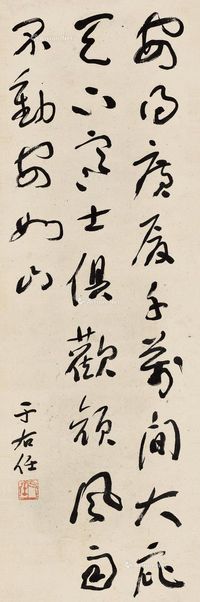 安得广厦千万间大庇
天下寒士俱歡顔風雨
不動安如山
于右任